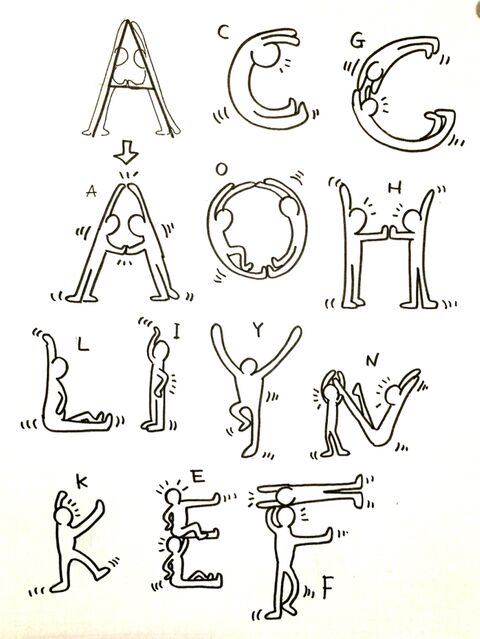 A C G
A O H
L I Y N
K E F